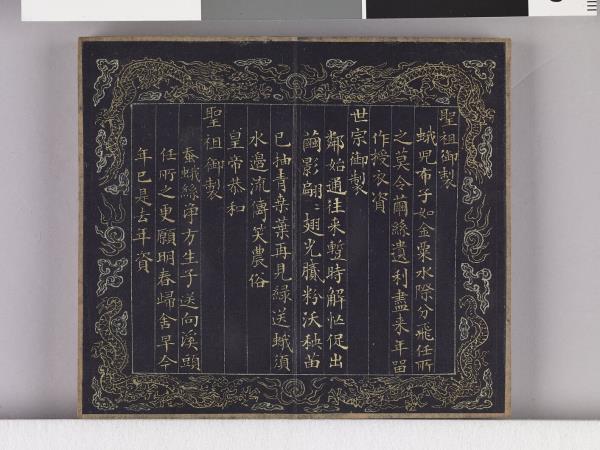 聖祖御製
蛾兒布子如金粟水際分飛任所
之莫令繭絲遺利盡来年留
作授衣資
世宗御製
鄰始通往来暫時解忙促出
繭影翩〻翅光膩粉沃秧苗
已抽青桒葉再見緑送蛾須
水邊流儔笑農俗
皇帝恭和
聖祖御製
蚕蛾絲淨方生子送向溪頭
任所之更願明春歸舍早今
年已是去年資